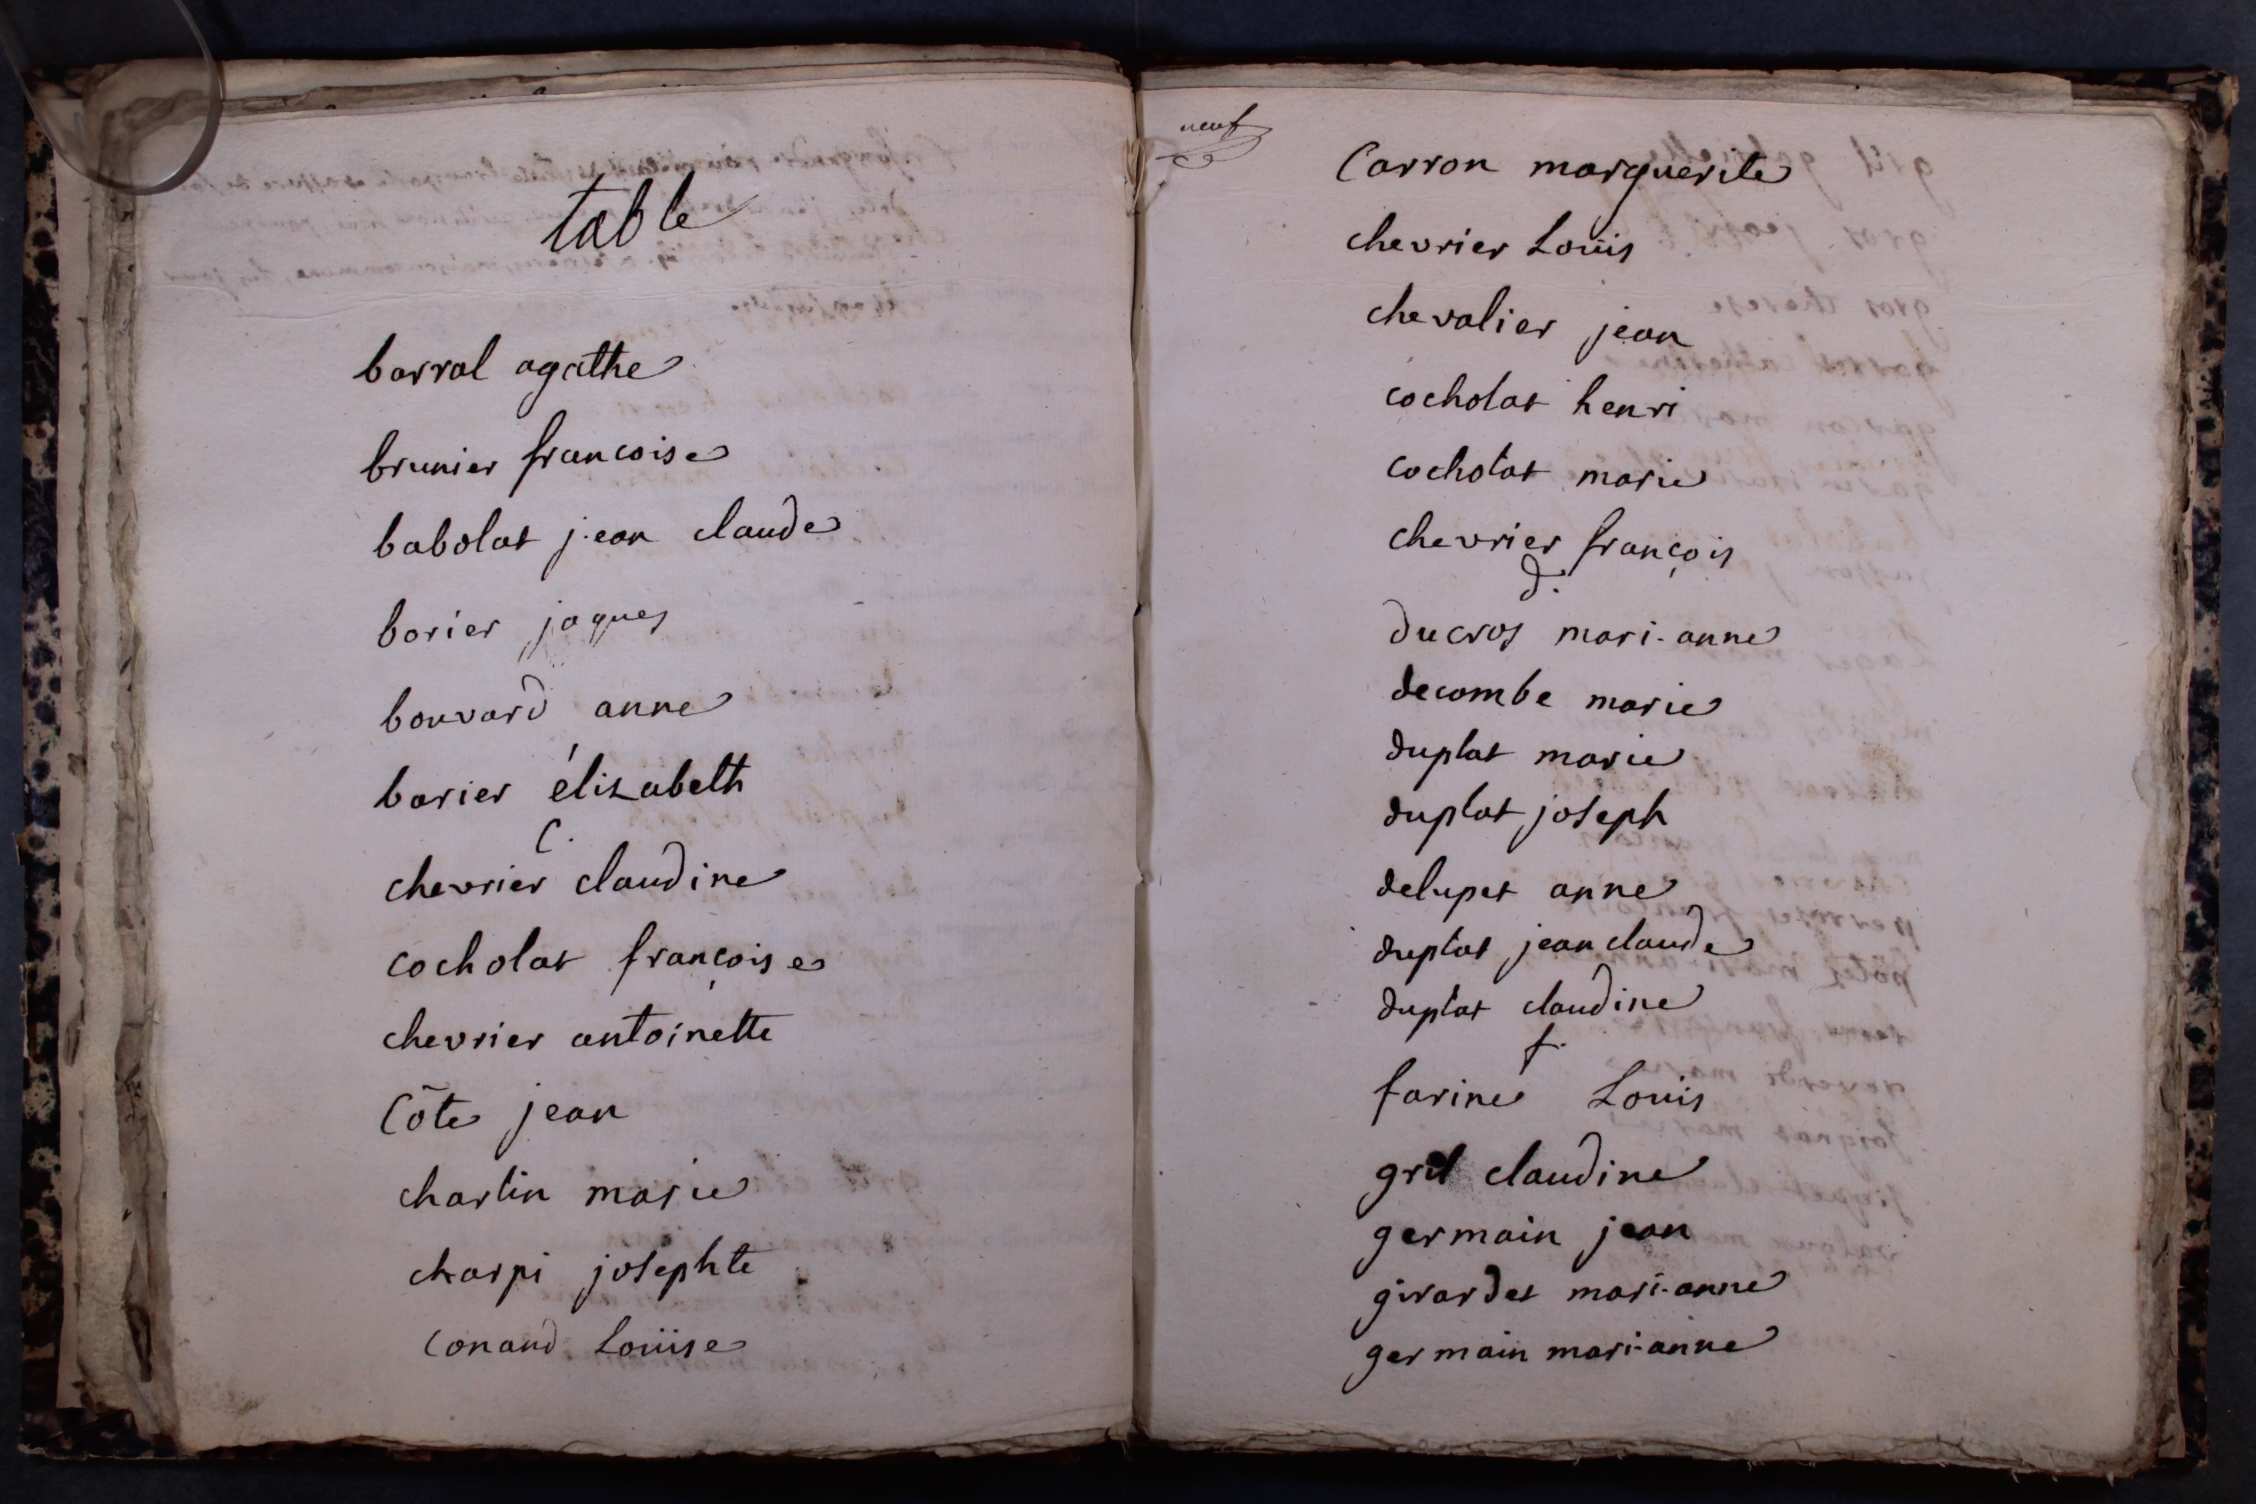 table
barral agathe
brunier francoise
babolat jean claude
borier jaques
bouvard anne
barier élizabeth
C.
chevrier claudine
cocholat françoise
chevrier antoinette
Côte jean
charlin marie
charpi josephte
Conand Loüise
neuf
Carron marguerite
chevrier Loüis
chevalier jean
cocholat henri
cocholat marie
chevrier françois
d.
ducros mari-anne
decombe marie
duplat marie
duplat joseph
delupet anne
duplat jean claude
duplat claudine
f.
farine Louis
gril claudine
germain jean
girardet mari-anne
germain mari-anne